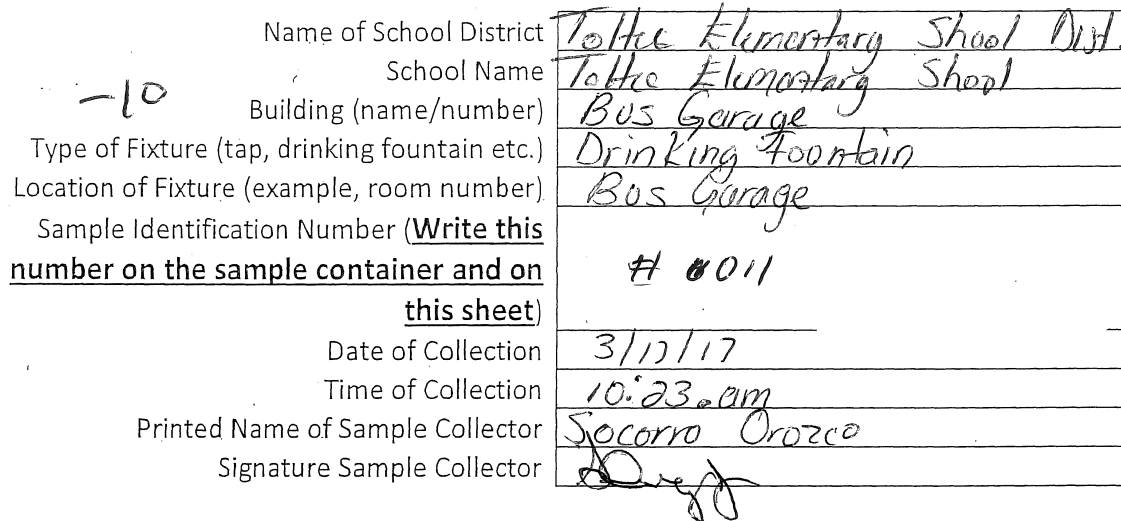 Name of School District Toltec Elementary Shool Dist.
School Name Toltec Elementary Shool
-10
Building (name/number) Bus Garage
Type of Fixture (tap, drinking fountain etc.) Drinking Fountain
Location of Fixture (example, room number) Bus Garage
Sample Identification Number (Write this
number on the sample container and on
this sheet)
# 0011
Date of Collection 3/17/17
Time of Collection 10:23.am
Printed Name of Sample Collector Socorro Orozco
Signature Sample Collector